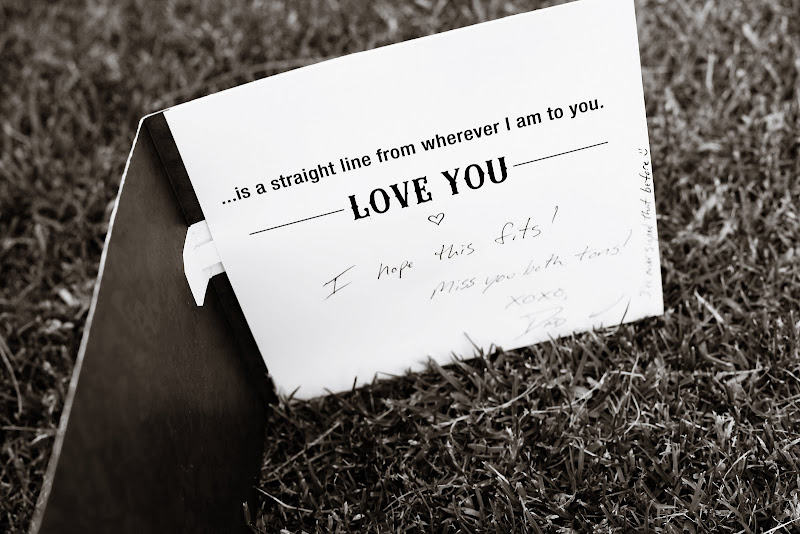 ...is a straight line from wherever I am to you.
LOVE YOU
I hope this fits!
Miss you both tons!
XOXO,
Dad
that before